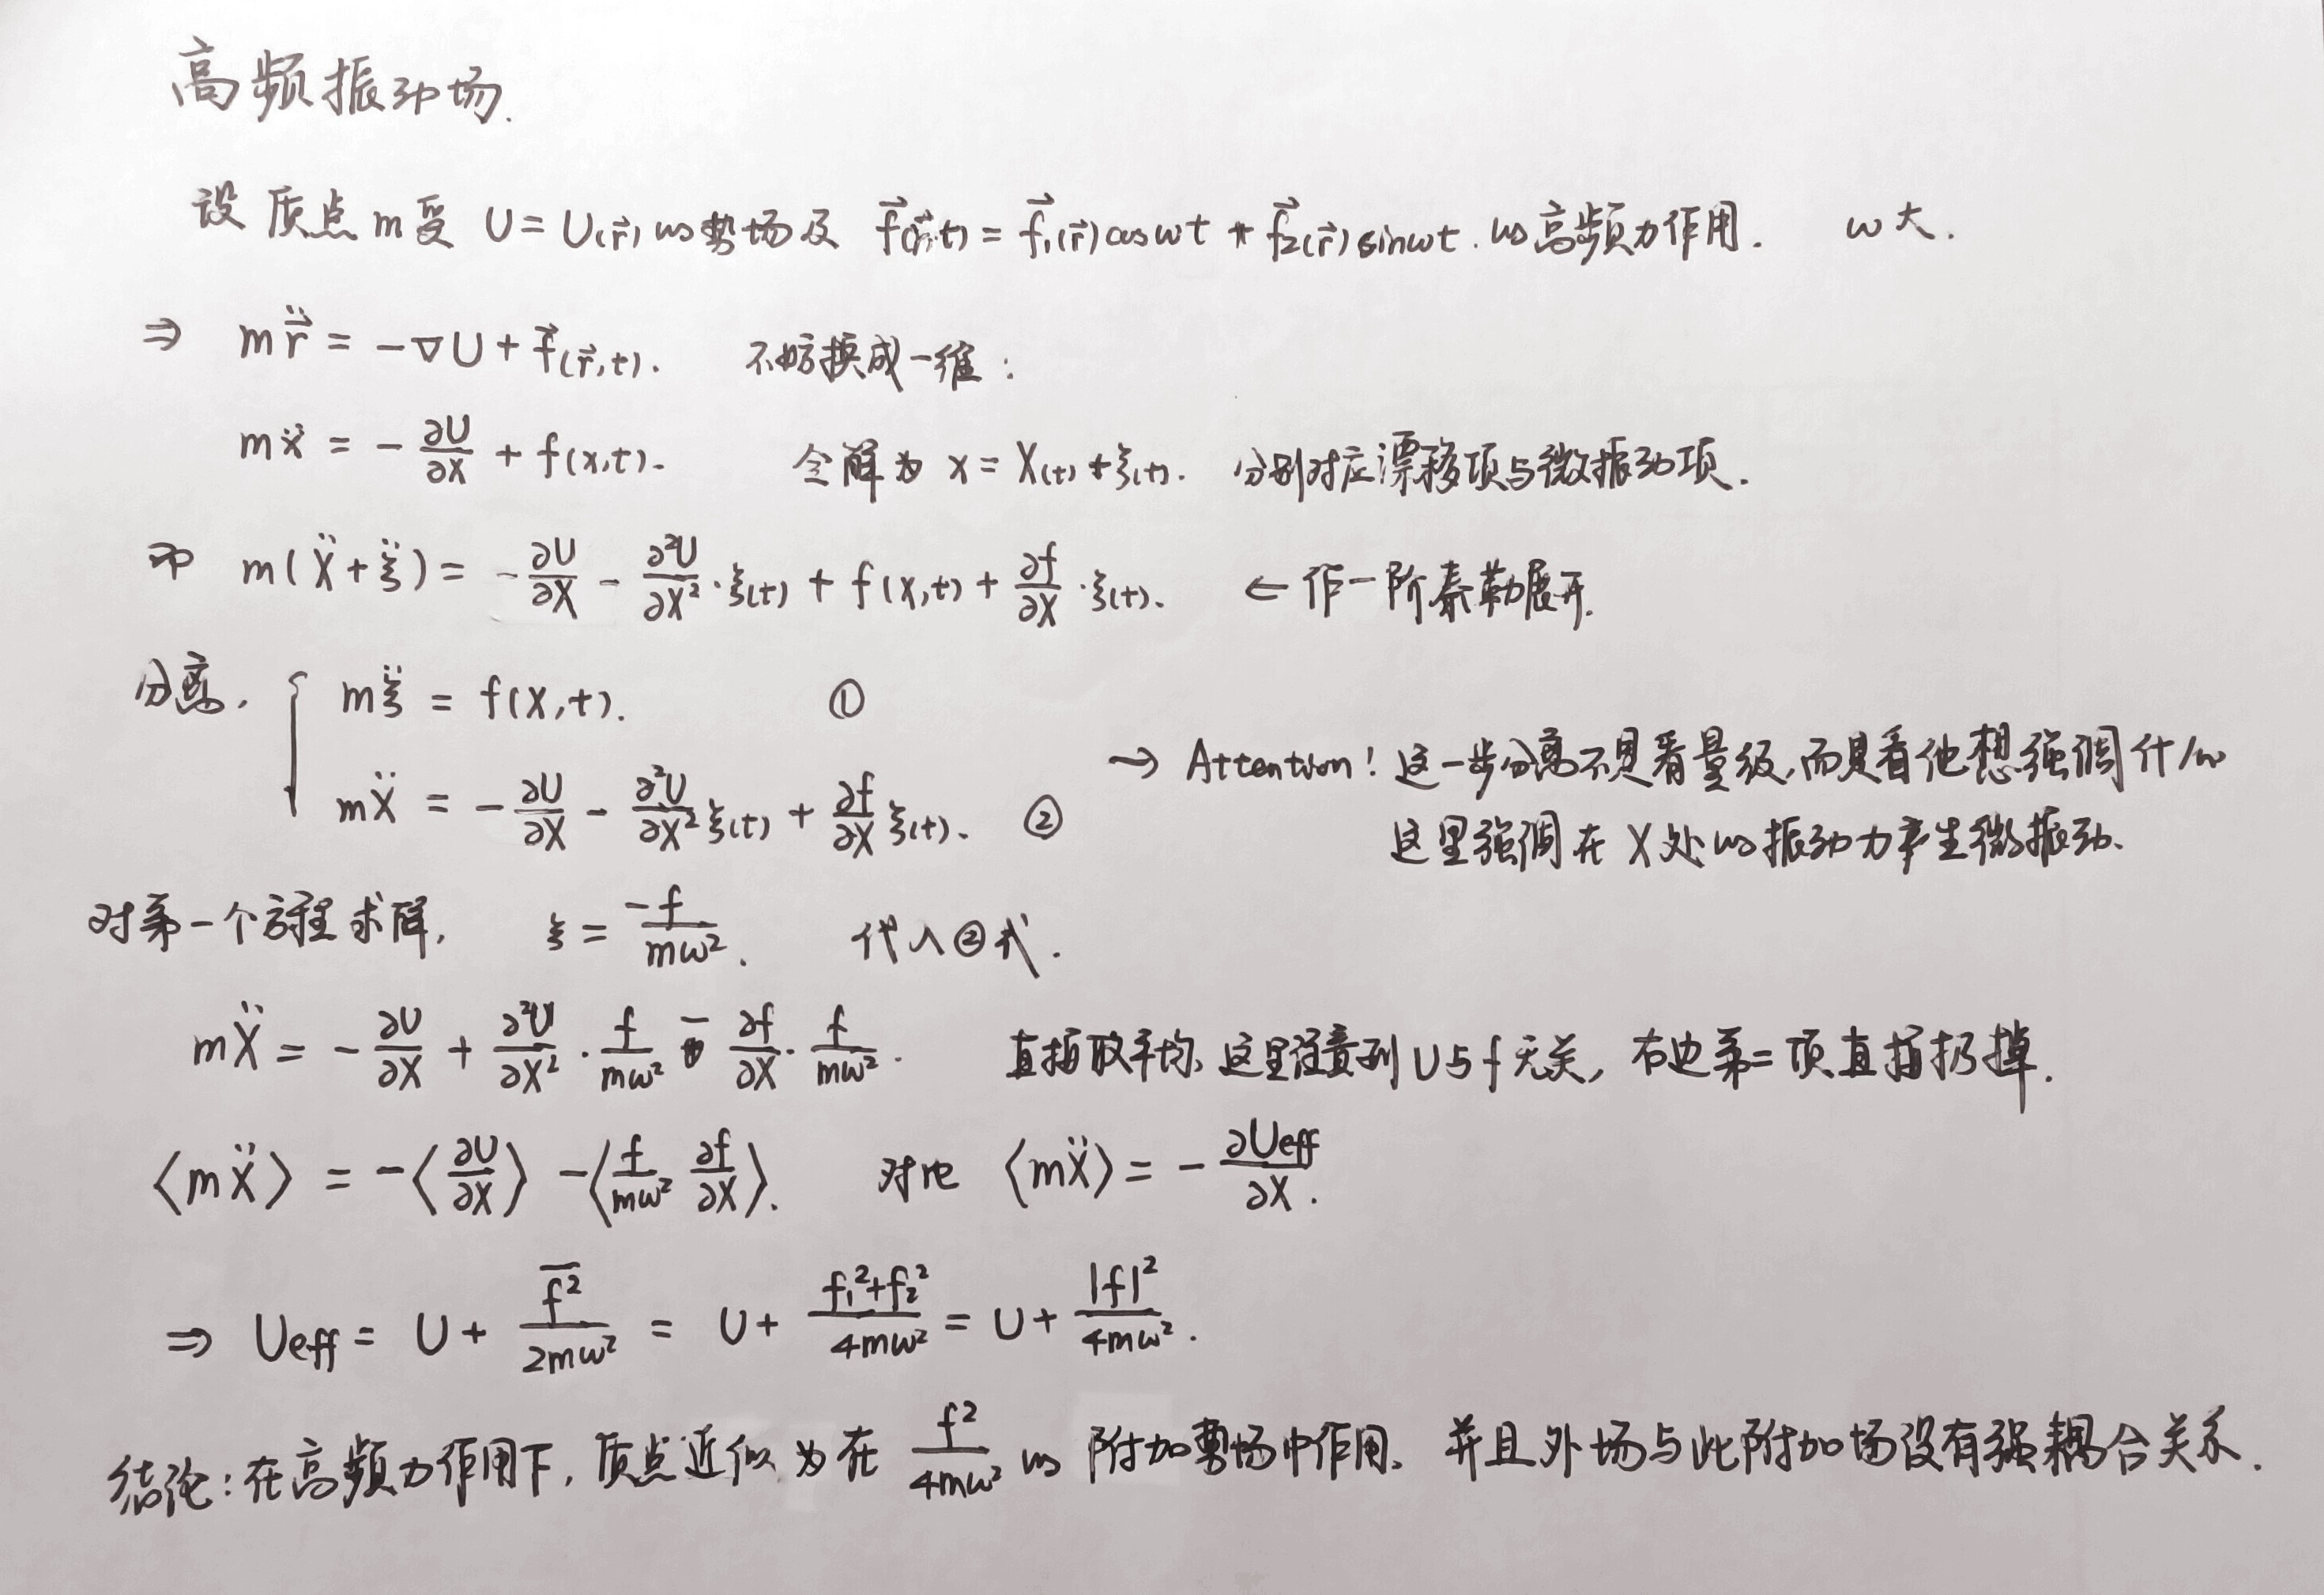 高频振动场.
设 质点 m 受 U = U(r⃗) 的势场及 f⃗(r⃗,t) = f⃗₁(r⃗)cosωt + f⃗₂(r⃗)sinωt. 的高频力作用. ω大.
⇒ m r⃗̈ = -∇U + f⃗(r⃗,t). 不妨换成一维:
mẍ = - ∂U/∂x + f(x,t). 令解为 x = X(t) + ξ(t). 分别对应漂移项与微振动项.
即 m(Ẍ + ξ̈) = - ∂U/∂X - ∂²U/∂X² · ξ(t) + f(X,t) + ∂f/∂X · ξ(t). ← 作一阶泰勒展开.
分离, { mξ̈ = f(X,t). ①
mẌ = - ∂U/∂X - ∂²U/∂X² ξ(t) + ∂f/∂X ξ(t). ②
→ Attention! 这一步分离不是看量级,而是看他想强调什么
这里强调在 X 处的振动力产生微振动.
对第一个方程求解, ξ = -f/mω². 代入②式.
mẌ = - ∂U/∂X + ∂²U/∂X² · f/mω² - ∂f/∂X · f/mω². 直接取平均, 这里注意到 U与f无关, 右边第二项直接扔掉.
⟨mẌ⟩ = -⟨∂U/∂X⟩ - ⟨f/mω² ∂f/∂X⟩. 对比 ⟨mẌ⟩ = - ∂Ueff/∂X.
⇒ Ueff = U + f̅²̅/2mω² = U + (f₁²+f₂²)/4mω² = U + |f|²/4mω².
结论: 在高频力作用下, 质点近似为在 f²/4mω² 的附加势场中作用. 并且外场与此附加场没有强耦合关系.